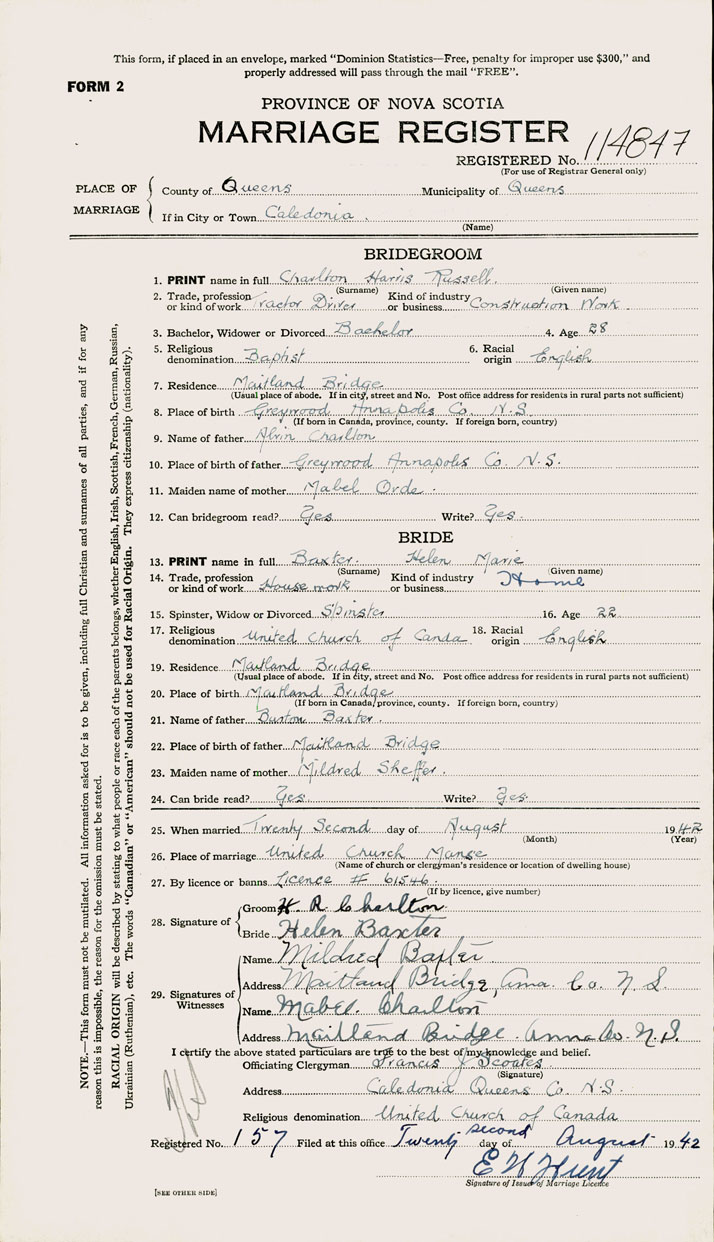 This form, if placed in an envelope, marked "Dominion Statistics—Free, penalty for improper use $300," and
properly addressed will pass through the mail "FREE".
FORM 2
PROVINCE OF NOVA SCOTIA
MARRIAGE REGISTER
REGISTERED No. 114847
(For use of Registrar General only)
PLACE OF MARRIAGE
County of Queens Municipality of Queens
If in City or Town Caledonia.
(Name)
BRIDEGROOM
1. PRINT name in full Charlton Harris Russell.
(Surname) (Given name)
2. Trade, profession or kind of work Tractor Driver Kind of industry or business Construction Work.
3. Bachelor, Widower or Divorced Bachelor 4. Age 28
5. Religious denomination Baptist 6. Racial origin English
7. Residence Maitland Bridge
(Usual place of abode. If in city, street and No. Post office address for residents in rural parts not sufficient)
8. Place of birth Greywood Annapolis Co. N.S.
(If born in Canada, province, county. If foreign born, country)
9. Name of father Alvin Charlton
10. Place of birth of father Greywood Annapolis Co. N.S.
11. Maiden name of mother Mabel Orde.
12. Can bridegroom read? Yes Write? Yes.
BRIDE
13. PRINT name in full Baxter. Helen Marie
(Surname) (Given name)
14. Trade, profession or kind of work House work Kind of industry or business Home
15. Spinster, Widow or Divorced Spinster 16. Age 22
17. Religious denomination United Church of Canda 18. Racial origin English
19. Residence Maitland Bridge
(Usual place of abode. If in city, street and No. Post office address for residents in rural parts not sufficient)
20. Place of birth Maitland Bridge
(If born in Canada, province, county. If foreign born, country)
21. Name of father Burton Baxter.
22. Place of birth of father Maitland Bridge
23. Maiden name of mother Mildred Sheffer.
24. Can bride read? Yes Write? Yes.
25. When married Twenty Second day of August 1942
(Month) (Year)
26. Place of marriage United Church Manse
(Name of church or clergyman's residence or location of dwelling house)
27. By licence or banns Licence # 61546.
(If by licence, give number)
28. Signature of
Groom H R Charlton
Bride Helen Baxter
29. Signatures of Witnesses
Name Mildred Baxter.
Address Maitland Bridge, Anna. Co. N S.
Name Mabel Charlton
Address Maitland Bridge. Anna Co. N.S.
I certify the above stated particulars are true to the best of my knowledge and belief.
Officiating Clergyman Francis J. Scoates.
(Signature)
Address Caledonia Queens Co. N.S.
Religious denomination United Church of Canada
Registered No. 157 Filed at this office Twenty second day of August 1942
E W Hunt
Signature of Issuer of Marriage Licence
[SEE OTHER SIDE]
NOTE.—This form must not be mutilated. All information asked for is to be given, including full Christian and surnames of all parties, and if for any
reason this is impossible, the reason for the omission must be stated.
RACIAL ORIGIN will be described by stating to what people or race each of the parents belongs, whether English, Irish, Scottish, French, German, Russian,
Ukrainian (Ruthenian), etc. The words "Canadian" or "American" should not be used for Racial Origin. They express citizenship (nationality).